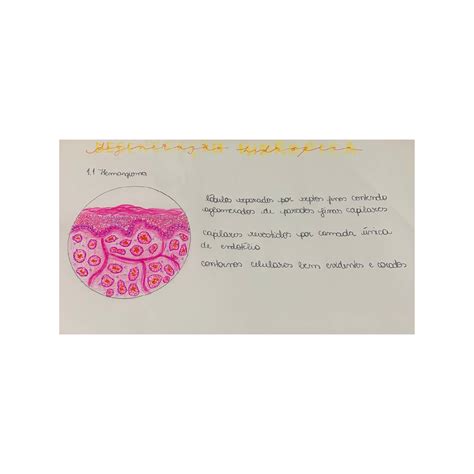 degeneração hidrópica
1.1 Hemangioma
lóbulos separados por septos finos contendo
aglomerados de paredes finas capilares
capilares revestidos por camada única
de endotélio
contornos celulares bem evidentes e corados